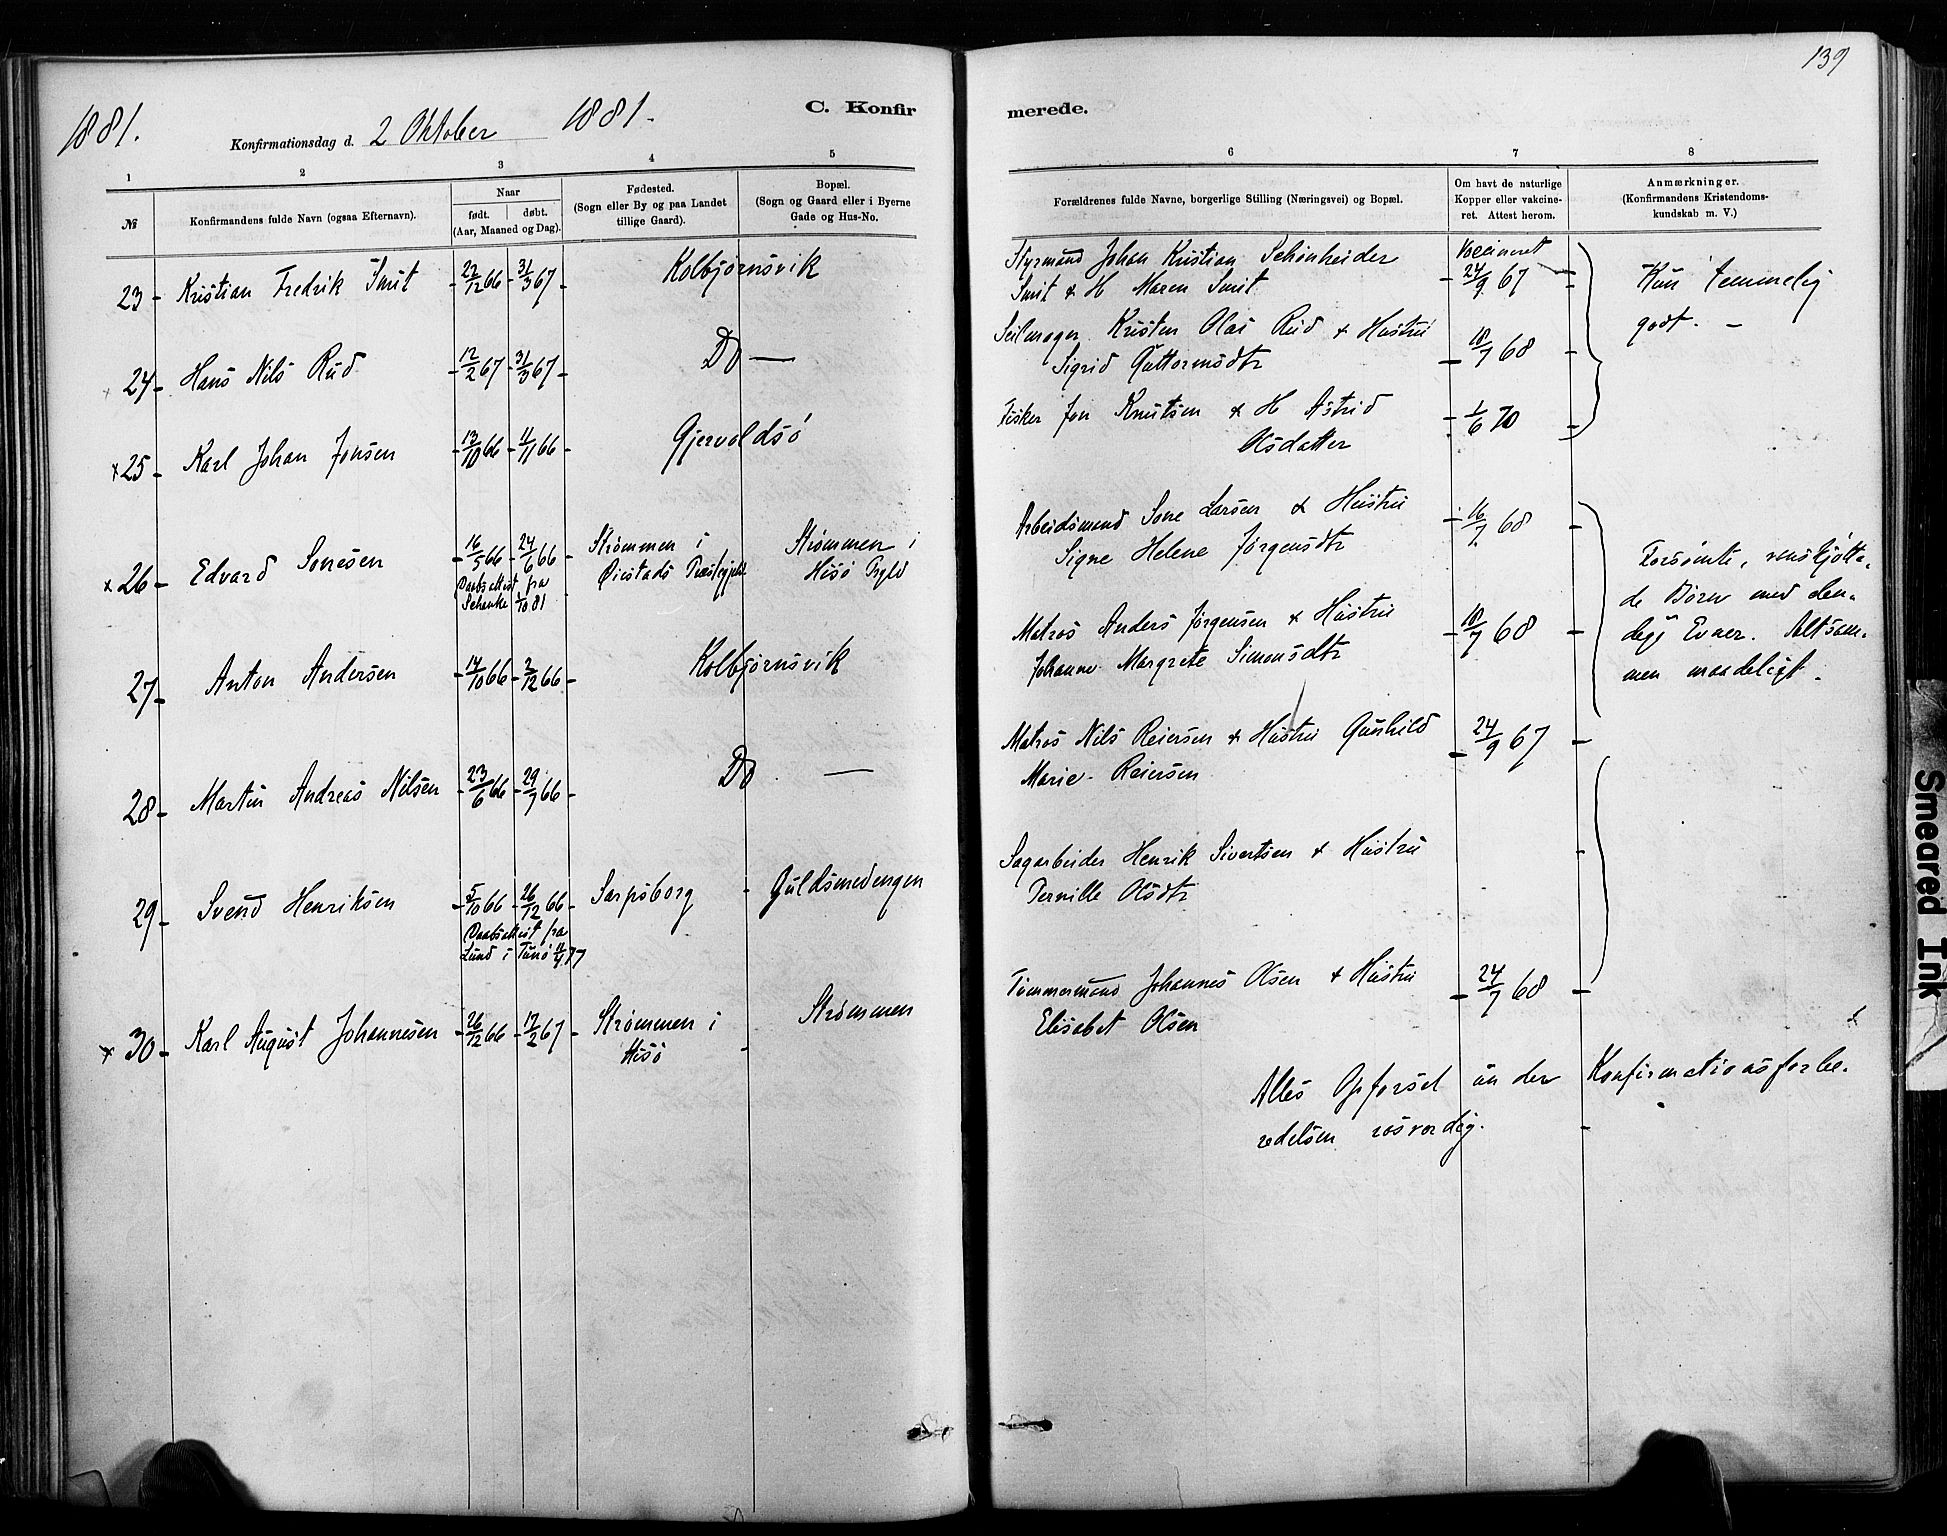 139
1881. Konfirmationsdag d. 2 Oktober 1881. C. Konfirmerede.
1 2 3 4 5 6 7 8
№
Konfirmandens fulde Navn (ogsaa Efternavn).
Naar
født. døbt.
(Aar, Maaned og Dag).
Fødested.
(Sogn eller By og paa Landet
tillige Gaard).
Bopæl.
(Sogn og Gaard eller i Byerne
Gade og Hus-No.
Forældrenes fulde Navne, borgerlige Stilling (Næringsvei) og Bopæl.
Om havt de naturlige
Kopper eller vakcine-
ret. Attest herom.
Anmærkninger.
(Konfirmandens Kristendoms-
kundskab m. V.)
23 - Kristian Fredrik Smit 31/3 67 Kolbjørnsvik
Styrmand Johan Kristian Schønheider
Smit & H Maren Smit
Vaccineret
24/9 67
Kun temmelig
godt. -
24 - Hans Nils Rud 12/2 67 31/3 67 Do —
Seilmager Kristen Olai Rud & Hustru
Sigrid Guttormsdtr
18/7 68
x 25 - Karl Johan Jonsen 13/10 66 11/11 66 Gjervoldsø
Fisker Jon Knutsen & H Astrid
Olsdatter
1/6 70
x 26 - Edvard Sonesen 16/5 66 24/6 66
Daabsattest fra
Schanke 1/10 81
Strømmen i
Øiestads Præstegjeld
Strømmen i
Hisø Prgld
Arbeidsmand Sone Larsen & Hustru
Signe Helene Jørgensdtr
16/7 68
Forsømte, vanskjøtte-
de Børn med elen-
dige Evner. Altsam-
men maadeligt.
27 - Anton Andersen 14/10 66 2/12 66 Kolbjørnsvik
Matros Anders Jørgensen & Hustru
Johanne Margrete Simonsdtr
18/7 68
28 - Martin Andreas Nilsen 23/6 66 29/7 66 Do —
Matros Nils Reiersen & Hustru Gunhild
Marie Reiersen
24/9 67
29 - Svend Henriksen 5/10 66 26/12 66
Daabsattest fra
Lund i Tunø
Sarpsborg
Guldsmedengen
Sagarbeider Henrik Sivertsen & Hustru
Pernille Olsdtr
x 30 - Karl August Johannesen 26/12 66 17/2 67
Strømmen i
Hisø
Strømmen
Tømmermand Johannes Olsen & Hustru
Elisabet Olsen
24/7 68
Alles Opførsel under Konfirmationsforbe-
redelsen rosværdig.
Smeared Ink